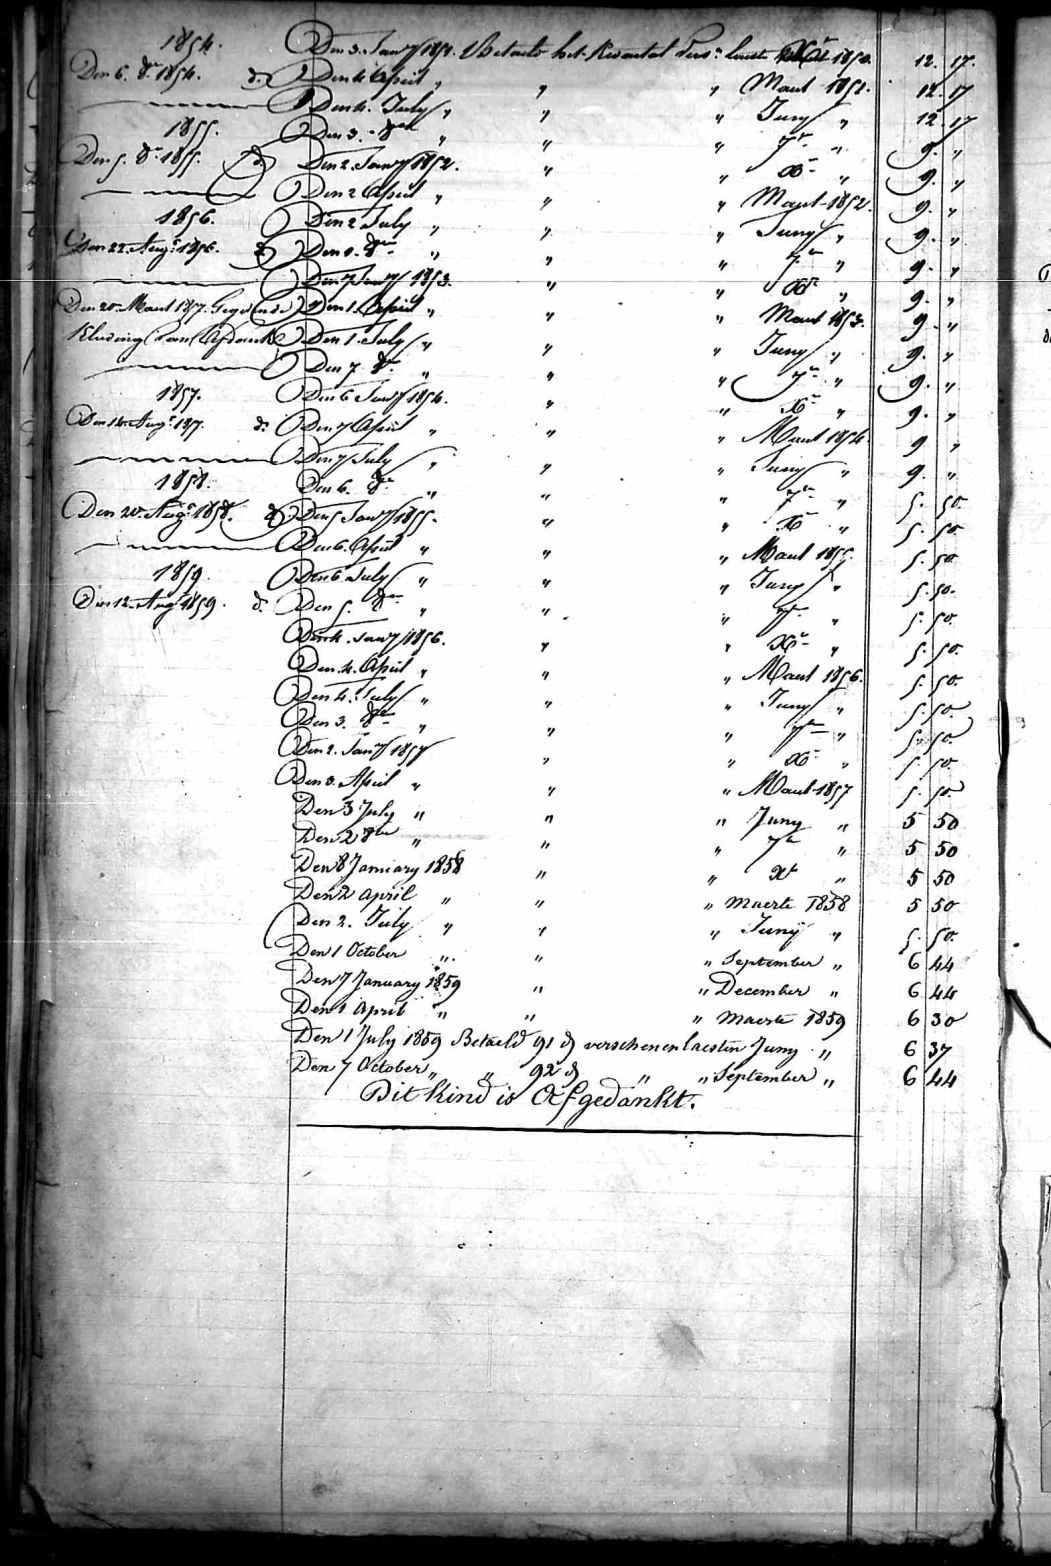 1854.
Den 3. Jany 1851. Betaelt het Kwartal Pens: laest Xr 1850. 12. 17.
Den 6. 8r 1854. d. Den 4 April „ „ „ Maert 1851. 12. 17
Den 4. July „ „ „ Juny „ 12. 17
1855.
Den 3. 8re „ „ „ 7r „ 9. „
Den 5. 8r 1855. d. Den 2. Jany 1852. „ „ Xr „ 9. „
Den 2 April „ „ „ Maert 1852. 9. „
1856.
Den 2 July „ „ „ Juny „ 9. „
Den 22. Augt 1856. d. Den 1. 8re „ „ „ 7re „ 9. „
Den 7 Jany 1853. „ „ Xr „ 9. „
Den 20. Maert 1857. Den 1. April „ „ „ Maert 1853. 9. „
Kleeding van Afdank Den 1. July „ „ „ Juny „ 9. „
Den 7. 8r „ „ „ 7re „ 9. „
1857.
Den 6 Jany 1854. „ „ Xr „ 9. „
Den 14. Augt 1857. d. Den 7 April „ „ „ Maert 1854. 9 „
Den 7 July „ „ „ Juny „ 9. „
1858.
Den 6. 8r „ „ „ 7re „ 5. 50.
Den 20. Augt 1858. d. Den 5 Jany 1855. „ „ Xr „ 5. 50.
Den 6. April „ „ „ Maert 1855. 5. 50
1859.
Den 6 July „ „ „ Juny „ 5. 50.
Den 12. Augt 1859. d. Den 5. 8re „ „ „ 7re „ 5. 50.
Den 4. Jany 1856. „ „ Xr „ 5. 50.
Den 4. April „ „ „ Maert 1856. 5. 50.
Den 4. July „ „ „ Juny „ 5. 50.
Den 3. 8re „ „ „ 7re „ 5. 50
Den 2. Jany 1857 „ „ Xr „ 5. 50.
Den 3. April „ „ „ Maert 1857 5. 50
Den 3 July „ „ „ Juny „ 5 50
Den 2 8re „ „ „ 7re „ 5 50
Den 8 January 1858 „ „ Xr „ 5 50
Den 2 april „ „ „ maerte 1858 5 50
Den 2. July „ „ „ Juny „ 5. 50.
Den 1 October „ „ „ September „ 6 44
Den 7 January 1859 „ „ December „ 6 44
Den 1 april „ „ „ maerte 1859 6 30
Den 1 July 1859 Betaeld 91 d verschenen laesten Juny „ 6 37
Den 7 October „ „ 92 d „ „ September „ 6 44
Dit kind is Afgedankt.